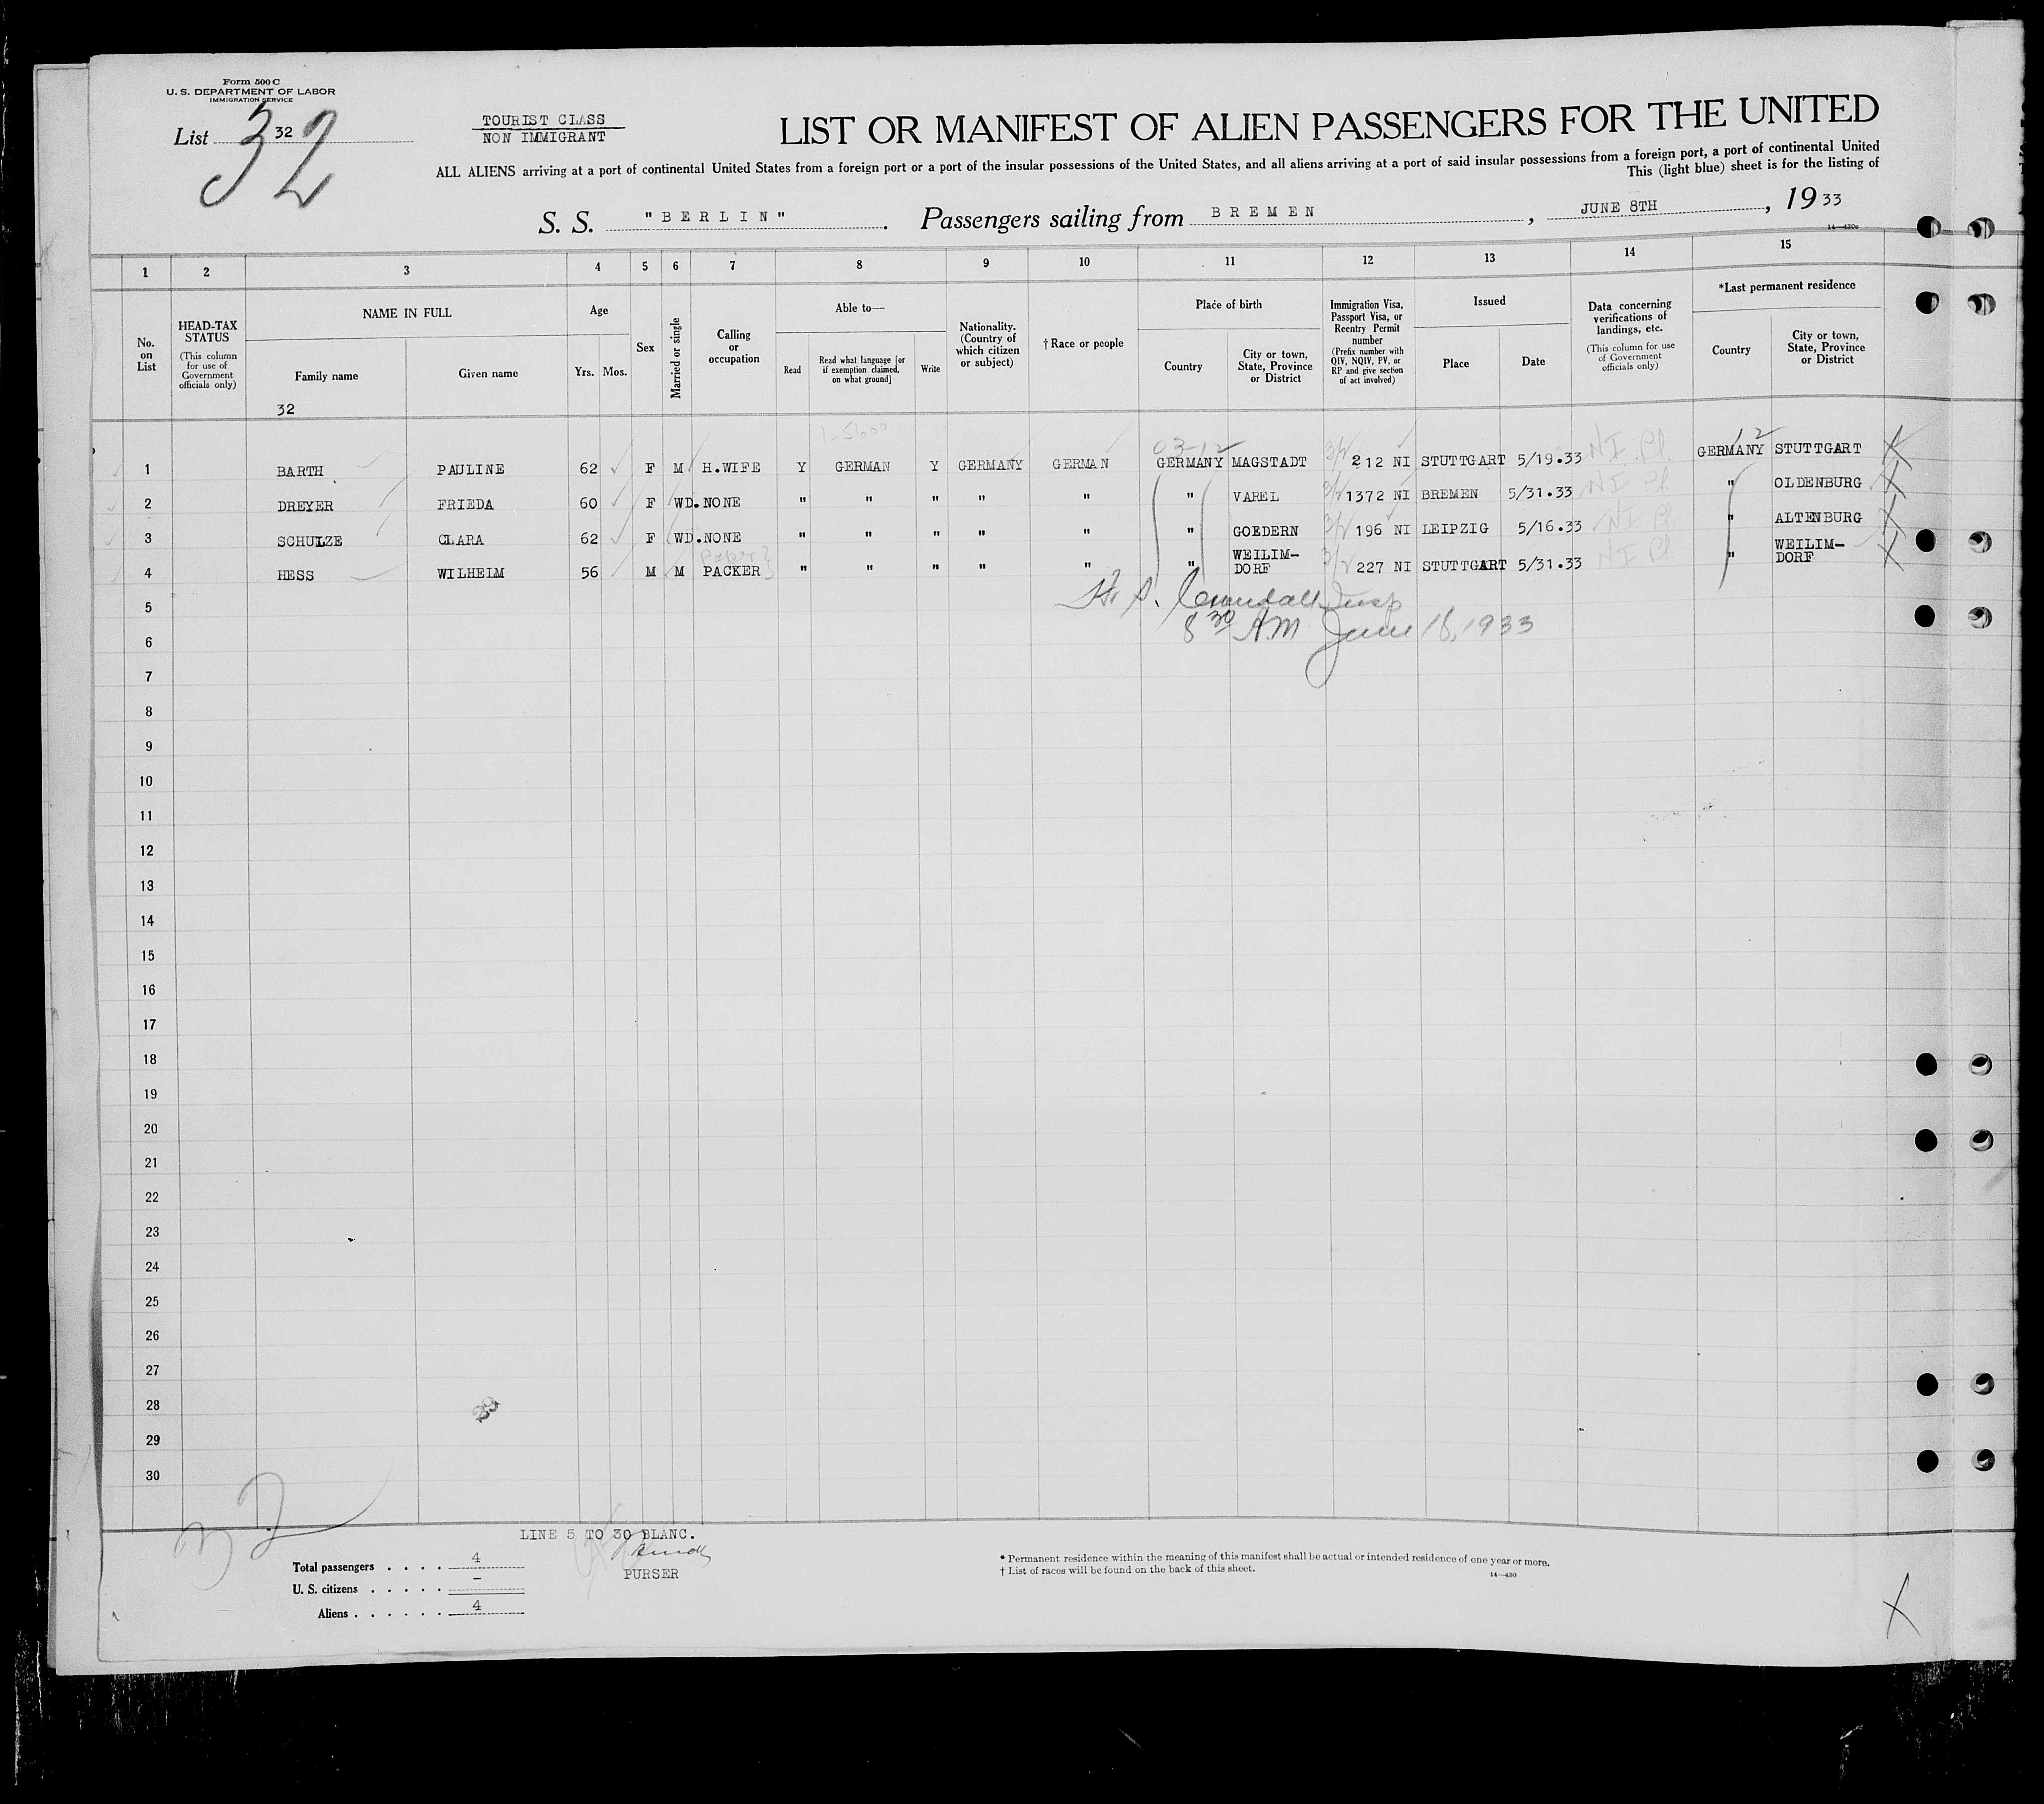 Form 500 C
U. S. DEPARTMENT OF LABOR
IMMIGRATION SERVICE
List 32
32
TOURIST CLASS
NON IMMIGRANT
LIST OR MANIFEST OF ALIEN PASSENGERS FOR THE UNITED
ALL ALIENS arriving at a port of continental United States from a foreign port or a port of the insular possessions of the United States, and all aliens arriving at a port of said insular possessions from a foreign port, a port of continental United
This (light blue) sheet is for the listing of
S. S. "BERLIN". Passengers sailing from BREMEN, JUNE 8TH, 1933
14—430c
1 2 3 4 5 6 7 8 9 10 11 12 13 14 15
No. on List
HEAD-TAX STATUS (This column for use of Government officials only)
NAME IN FULL
Family name
Given name
Age
Yrs. Mos.
Sex
Married or single
Calling or occupation
Able to—
Read
Read what language [or if exemption claimed, on what ground]
Write
Nationality. (Country of which citizen or subject)
† Race or people
Place of birth
Country
City or town, State, Province or District
Immigration Visa, Passport Visa, or Reentry Permit number (Prefix number with QIV, NQIV, PV, or RP and give section of act involved)
Issued
Place
Date
Data concerning verifications of landings, etc. (This column for use of Government officials only)
*Last permanent residence
Country
City or town, State, Province or District
32
03-12
12
1 BARTH PAULINE 62 F M H.WIFE Y GERMAN Y GERMANY GERMAN GERMANY MAGSTADT 3/2 212 NI STUTTGART 5/19.33 NI Pl. GERMANY STUTTGART X
2 DREYER FRIEDA 60 F WD. NONE " " " " " " VAREL 3/2 1372 NI BREMEN 5/31.33 NI Pl " OLDENBURG X
3 SCHULZE CLARA 62 F WD. NONE " " " " " " GOEDERN 3/2 196 NI LEIPZIG 5/16.33 NI Pl " ALTENBURG X
4 HESS WILHELM 56 M M PACKER " " " " " " WEILIM-DORF 3/2 227 NI STUTTGART 5/31.33 NI Pl " WEILIM-DORF X
5
8 30 AM June 18, 1933
6
7
8
9
10
11
12
13
14
15
16
17
18
19
20
21
22
23
24
25
26
27
28
29
30
32
LINE 5 TO 30 BLANC.
PURSER
Total passengers . . . . 4
U. S. citizens . . . . . –
Aliens . . . . . . 4
* Permanent residence within the meaning of this manifest shall be actual or intended residence of one year or more.
† List of races will be found on the back of this sheet.
14—430
X